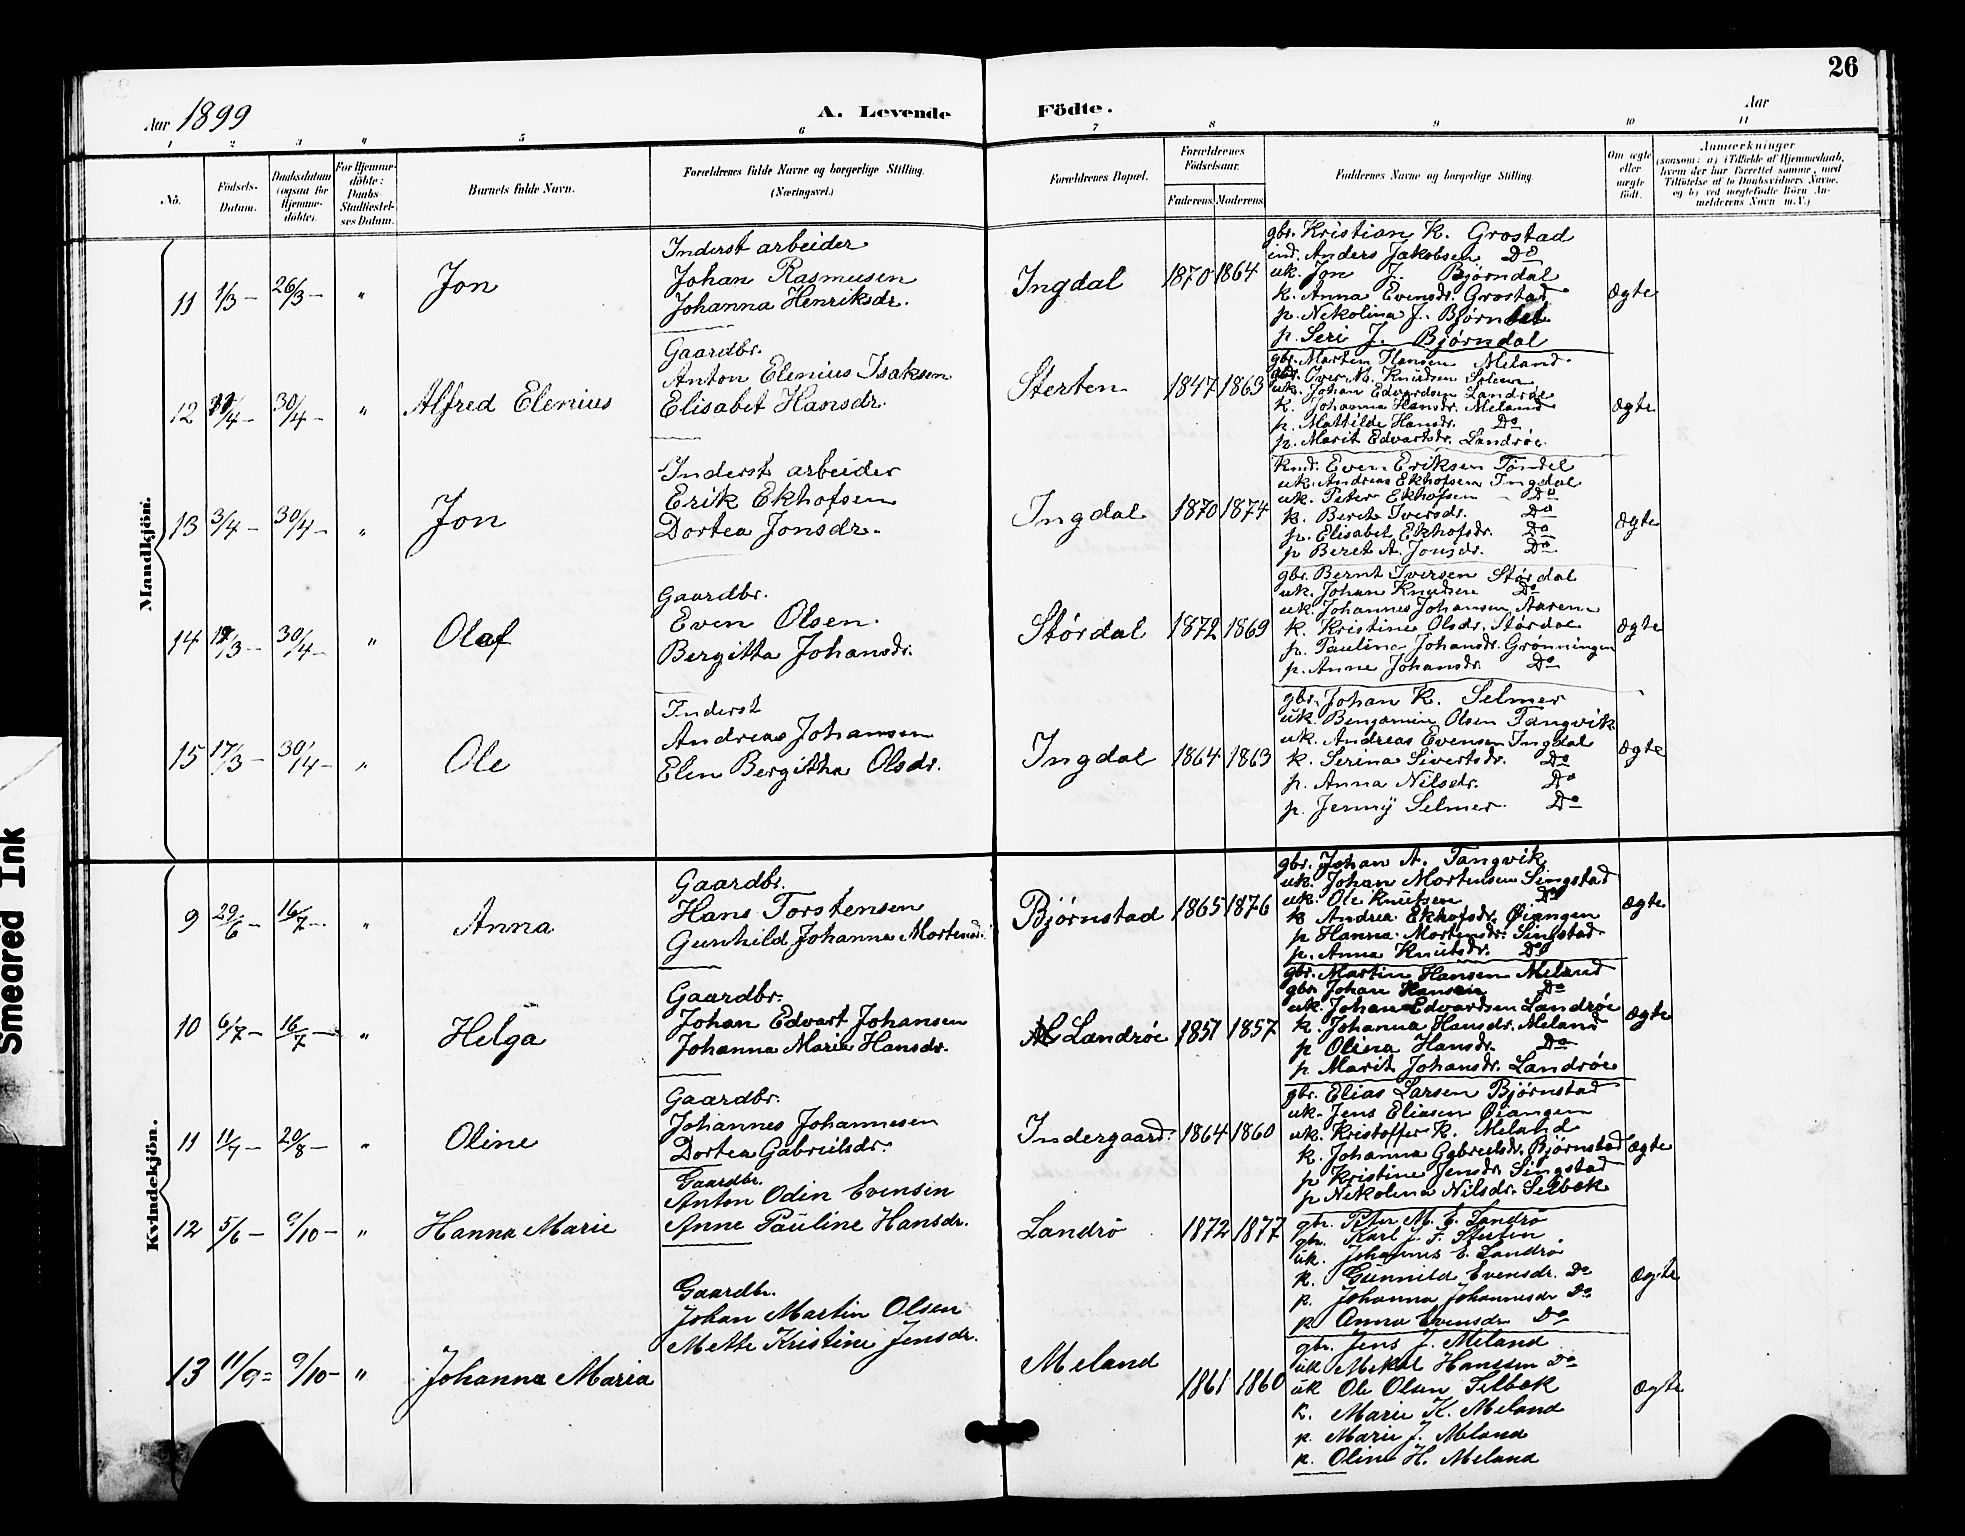 26
Aar 1899
A. Levende Födte.
Aar
1 2 3 4 5 6 7 8 9 10 11
No.
Födsels-Datum.
Daabsdatum (ogsaa for Hjemme-döbte).
For Hjemme-döbte: Daabs-Stadfæstel-ses Datum.
Barnets fulde Navn.
Forældrenes fulde Navne og borgerlige Stilling. (Næringsvei.)
Forældrenes Bopæl.
Forældrenes Födselsaar.
Faderens Moderens
Faddernes Navne og borgerlige Stilling.
Om ægte eller uægte född.
Anmærkninger
(saasom: a) i Tilfælde af Hjemmedaab,
hvem der har forrettet samme, med
Tilföielse af to Daabsvidners Navne.
og b) ved uægtefödte Börn An-
melderens Navn m.V.)
Mandkjön.
11 1/3 - 26/3 - " Jon
Inderst arbeider
Johan Rasmusen
Johanna Henriksdr.
Ingdal 1870 1864
gbr. Kristian K. Grostad
ind. Anders Jakobsen Do
uk. Jon J. Bjørndal
k. Anna Evensdr. Grostad
p. Nekolina J. Bjørndal
p. Seri J. Bjørndal
Ægte
12 /4 - 30/4 - " Alfred Elenius
Gaardbr.
Anton Elenius Isaksen
Elisabet Hansdr.
Sterten 1847 1863
gbr. Morten Hansen Meland
gbr. Iver M. Knudsen
uk. Johan Edvardsen Landrøe
k. Johanna Hansdr. Meland
p. Mathilde Hansdr. Do
p. Marit Edvartsdr. Landrøe.
Ægte
13 3/4 - 30/4 - " Jon
Inderst arbeider
Erik Ekhofsen
Dortea Jonsdr.
Ingdal 1870 1874
Even Eriksen Tøndel
uk. Andreas Ekhofsen Ingdal
uk. Peter Ekhofsen - Do
k. Beret Iversdr. Do
p. Elisabet Ekhofsdr. Do
p Beret A. Jonsdr. Do
Ægte
14 /3 - 30/4 - " Olaf
Gaardbr.
Even Olsen.
Bergitta Johansdr.
Størdal 1872 1869
gbr. Bernt Iversen Størdal
uk. Johan Knudsen Do
uk. Johannes Johansen Aarena
k. Kristine Olsdr. Størdal
p. Paulina Johansdr. Grønningen
p. Anne Johansdr. Do
Ægte
15 17/3 - 30/4 - " Ole
Inderst
Andreas Johansen
Elen Bergitha Olsdr.
Ingdal 1864 1863
gbr. Johan K. Selmer
uk. Benjamin Olsen Tangvik
uk. Andreas Evensen Ingdal
k. Serina Sivertsdr. Do
p. Anna Nilsdr. Do
p. Jenny Selmer. Do
Ægte
Kvindekjön.
9 29/6 - 16/7 - " Anna
Gaardbr.
Hans Torstensen
Gunhild Johanna Mortensd.
Bjørnstad 1865 1876
gbr. Johan A. Tangvik
uk. Johan Mortensen Singstad
uk. Ole Knutsen Do
k. Andrea Ekhofsdr. Øiangen
p Hanna Mortensdr. Singstad
p. Anna Knutsdr. Do
Ægte
10 6/7 - 16/7 - " Helga
Gaardbr.
Johan Edvart Johansen
Johanna Maria Hansdr.
Landrøe 1851 1857
gbr. Martin Hansen Meland
gbr Johan Hansen Do
uk. Johan Edvardsen Landrøe
k. Johanna Hansdr. Meland
p Olina Hansdr. Do
p. Marit Johansdr. Landrøe
Ægte
11 11/7 - 20/8 - " Oline
Gaardbr.
Johannes Johannesen
Dortea Gabrielsdr.
Indergaard. 1864 1860
gbr. Elias Larsen Bjørnstad
uk. Jens Eliasen Øiangen
uk. Kristoffer K. Meland
k. Johanna Gabrielsdr. Bjørnstad
p Kristine Jensdr. Singstad
p Nekolina Nilsdr. Selbæk
Ægte
12 5/6 - 9/10 - " Hanna Marie
Gaardbr.
Anton Odin Evensen
Anne Pauline Hansdr.
Landrø 1872 1877
gbr. Peter M. E. Landrø
gbr. Karl J. F. Sterten
uk. Johannes E. Landrø
k. Gunnild Evensdr. Do
p. Johanna Johannesdr Do
p Anna Evensdr Do
Ægte
13 11/9 = 9/10 - " Johanna Maria
Gaardbr.
Johan Martin Olsen
Mette Kristine Jensdr.
Meland 1861 1860
gbr. Jens J. Meland
uk Mekal Hanssen Do
uk Ole Olsen Selbæk
k. Marie K. Meland
p. Marie J. Meland
p. Oline H. Meland
Ægte
Smeared Ink